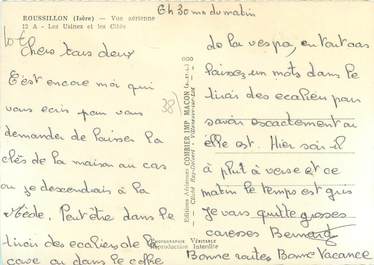 6h 30 mn du matin
ROUSSILLON (Isère) — Vue aérienne
12 A - Les Usines et les Cités
Chers tous deux
C'est encore moi qui
vous ecris pour vous
demander de laisser la
clés de la maison au cas
ou je descendrais à la
Piéde. Peut être dans le
tiroir des ecaliers de la
cave ou dans le coffre
38
Editions Aériennes COMBIER IMP. MACON
PHOTOGRAPHIE VÉRITABLE
Reproduction Interdite
de la vespa, en tout cas
laissez un mots dans le
tiroir des ecalier pour
savoir exactement ou
elle est. Hier soir il
à plut à verse et ce
matin le temps est gris
Je vais quitte grosses
caresses Bernard
Bonne routes Bonne Vacance